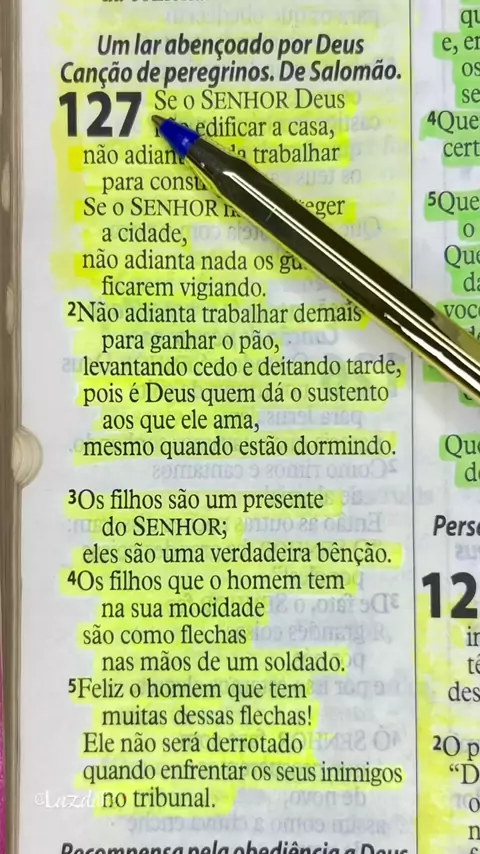 Um lar abençoado por Deus
Canção de peregrinos. De Salomão.
127 Se o SENHOR Deus
edificar a casa,
não adianta trabalhar
para
Se o SENHOR
a cidade,
não adianta nada os
ficarem vigiando.
2Não adianta trabalhar demais
para ganhar o pão,
levantando cedo e deitando tarde,
pois é Deus quem dá o sustento
aos que ele ama,
mesmo quando estão dormindo.
3Os filhos são um presente
do SENHOR;
eles são uma verdadeira bênção.
4Os filhos que o homem tem
na sua mocidade
são como flechas
nas mãos de um soldado.
5Feliz o homem que tem
muitas dessas flechas!
Ele não será derrotado
quando enfrentar os seus inimigos
no tribunal.
Recompensa pela obediência a Deus
qu
e, en
os
se
4Que
cert
5Que
o
Que
da
você
Que
de
Perse
12
in
tê
des
2O p
“D
o
n